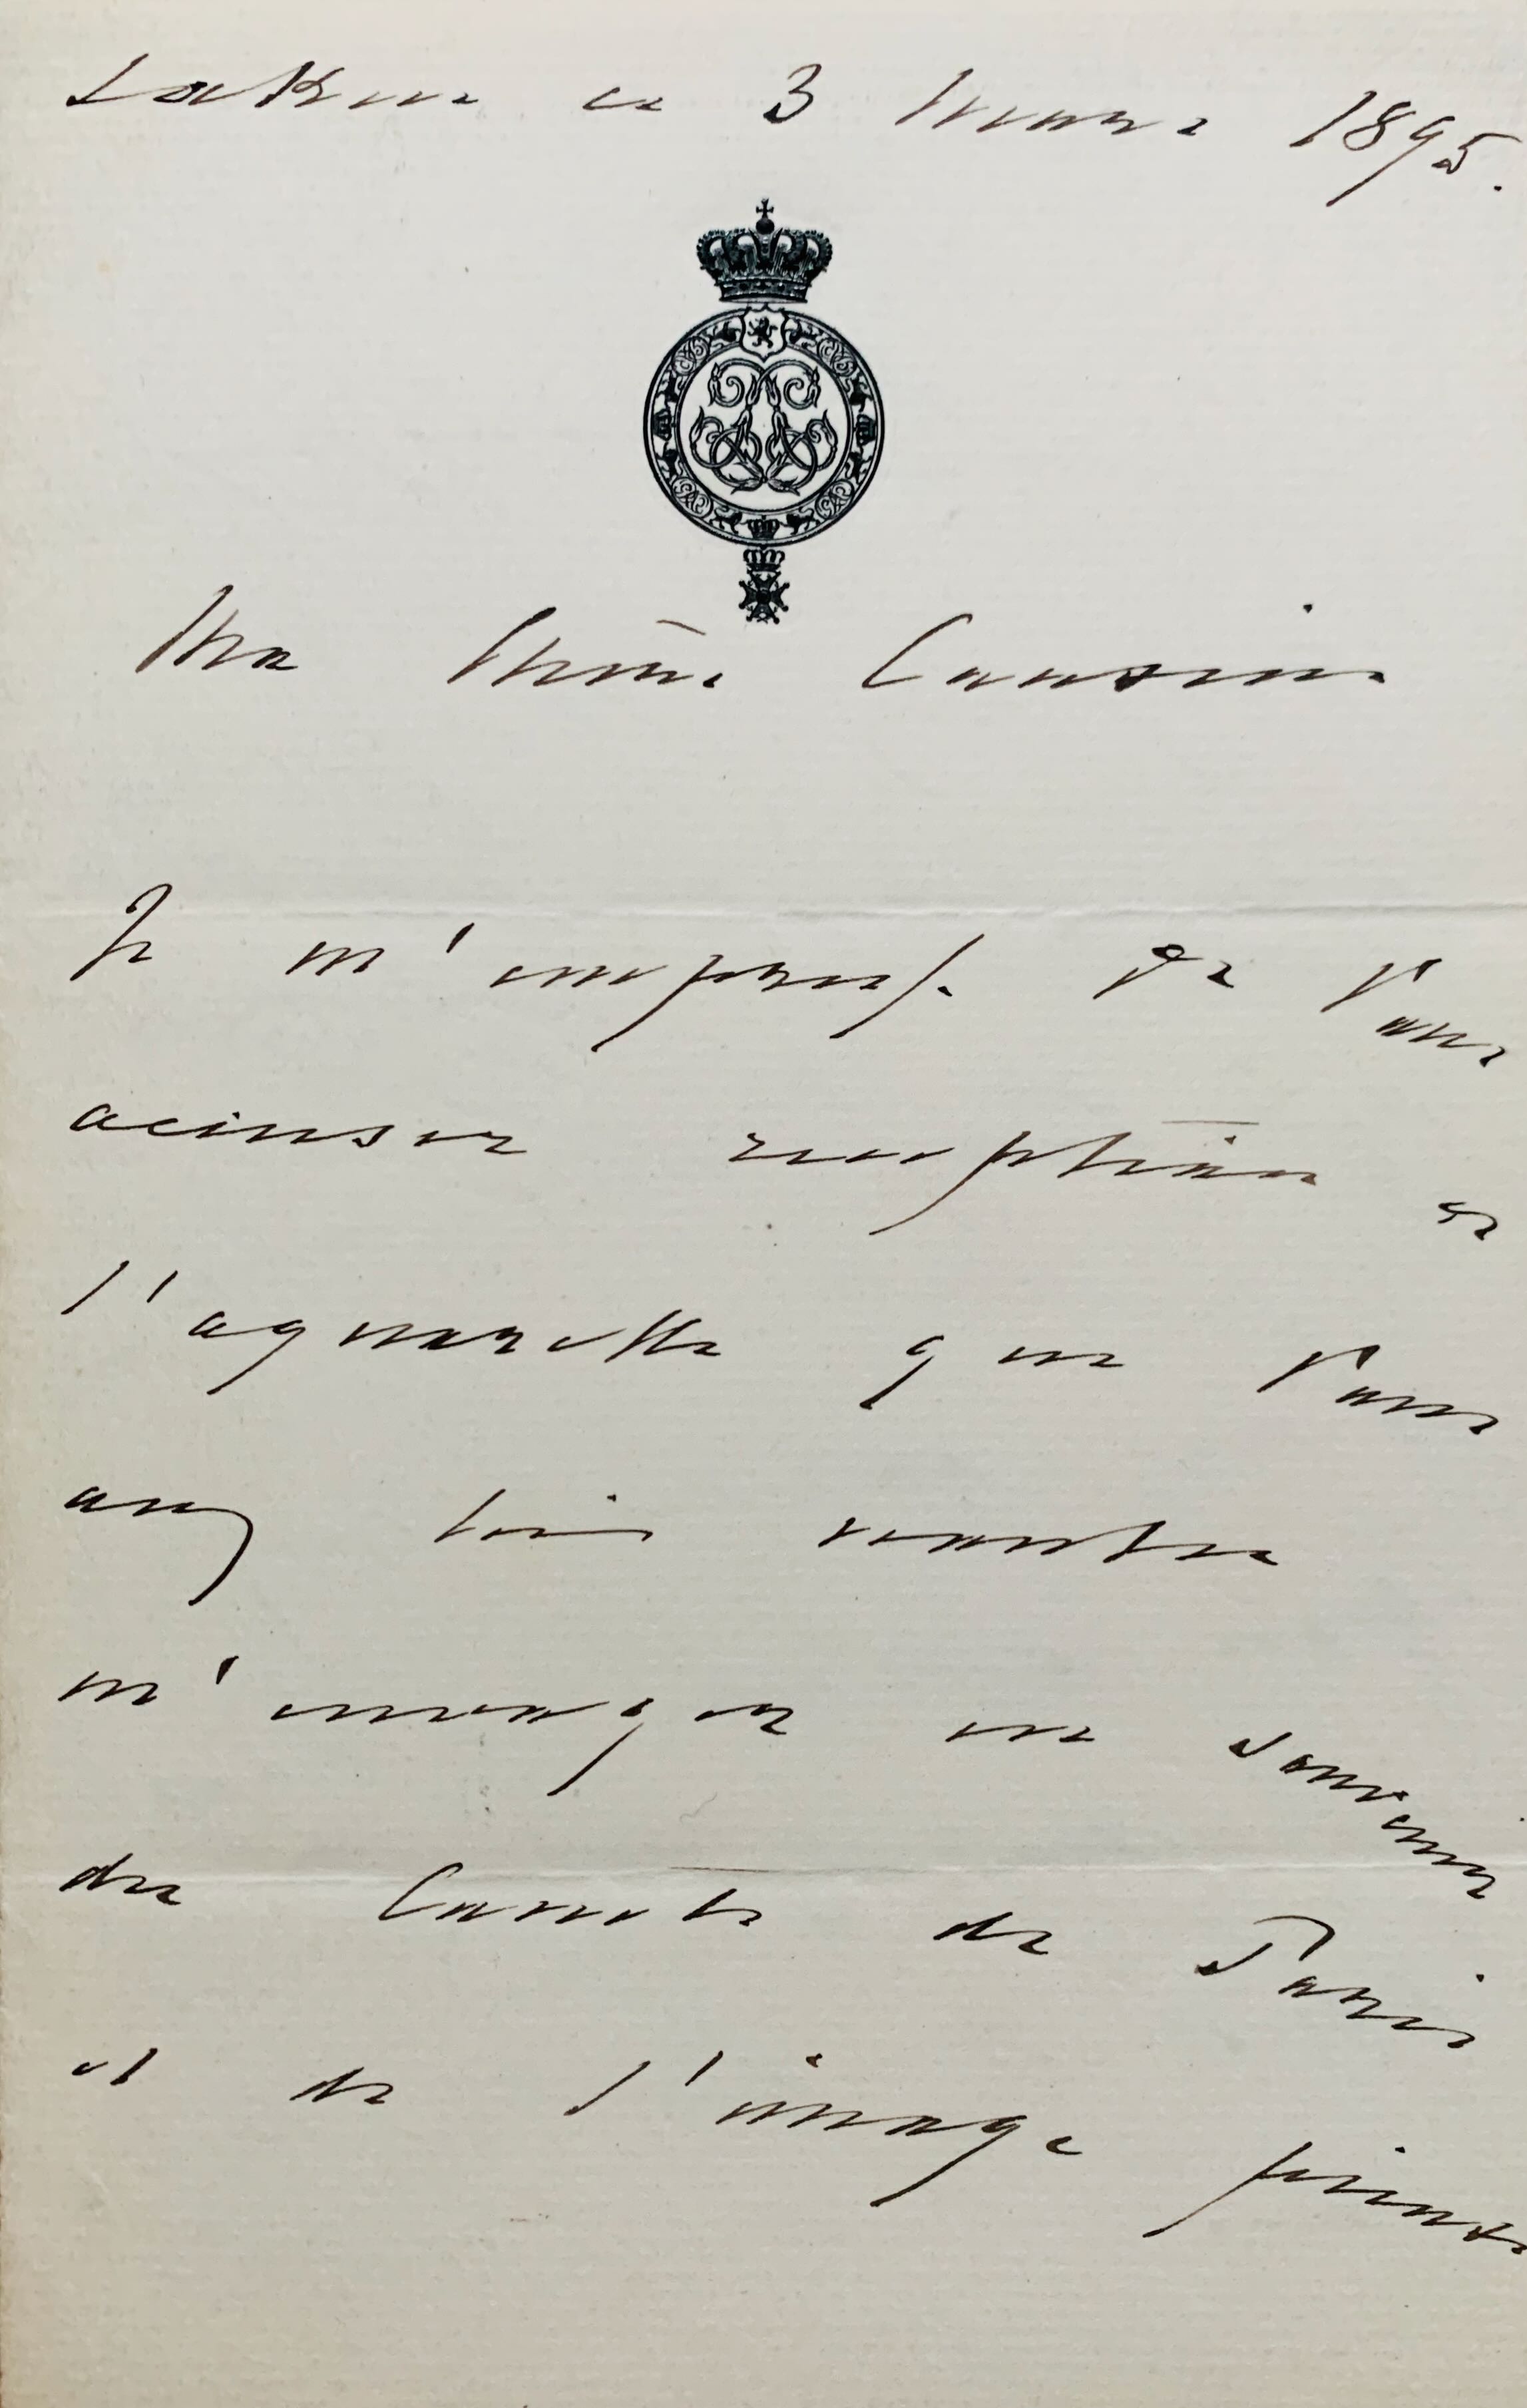 Laeken ce 3 mars 1895.
Ma chère Cousine
Je m'empresse de vous
accuser réception de
l'aquarelle que vous
avez bien voulu
m'envoyer en souvenir
du Comte de Paris
et de l'image pieuse